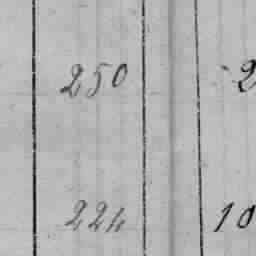 250 2
224 10